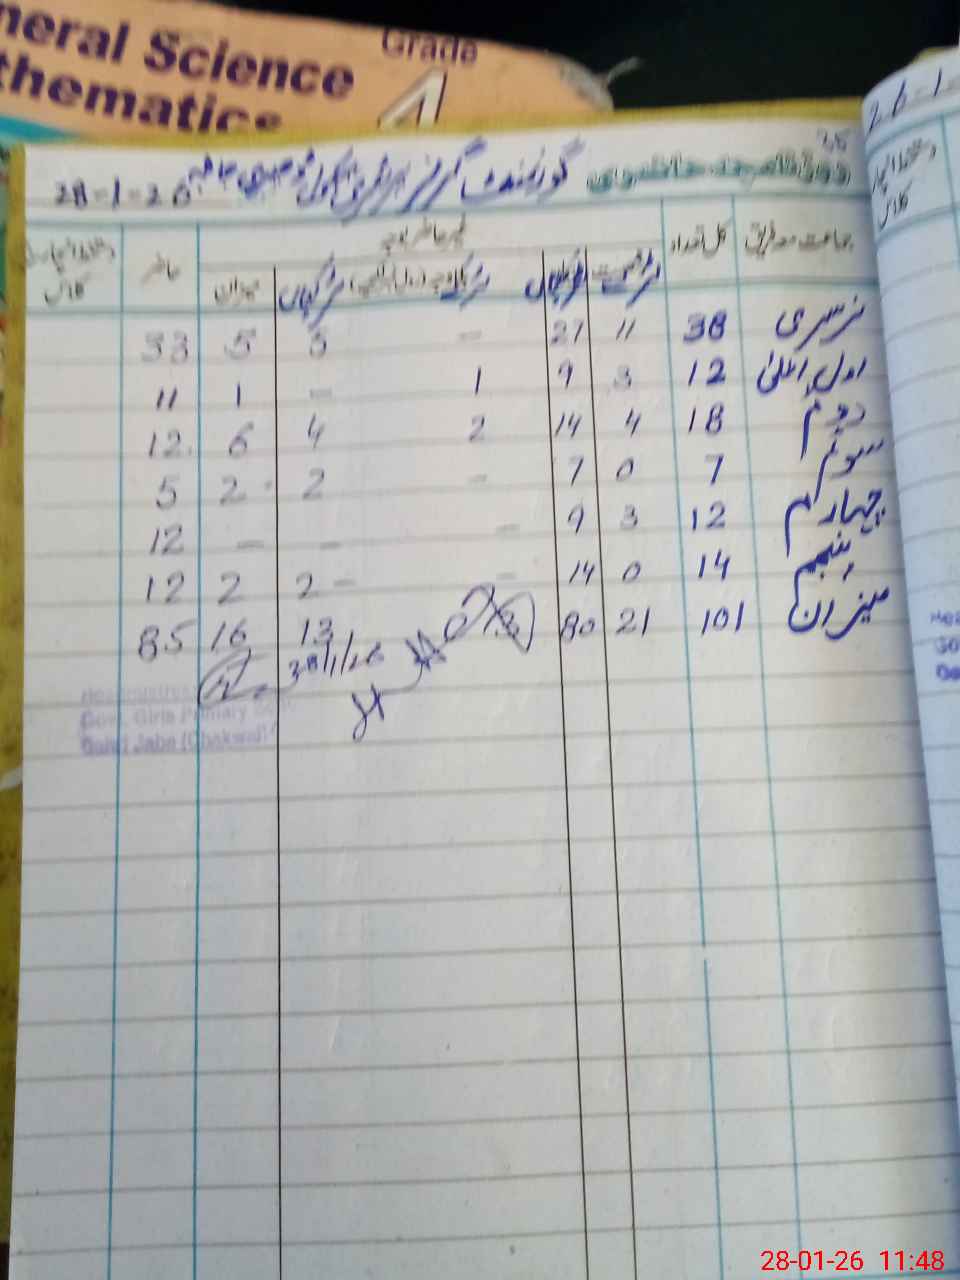 neral Science
Grade
thematics
4
26-1-
روزنامچہ حاضری گورنمنٹ گرلز پرائمری سکول 28-1-26
جماعت کل تعداد غیر حاضر بوجہ حاضر
لڑکیاں میزان
کلاس
نرسری 38 11 27 - 5 5 33
اول اعلیٰ 12 3 9 1 - 1 11
دوم 18 4 14 2 4 6 12
سوئم 7 0 7 - 2 2 5
چہارم 12 3 9 - - - 12
پنجم 14 0 14 - 2 2 12
میزان 101 21 80 3 13 16 85
28/1/26
Headmistress
Govt. Girls Primary
Jaba (Chakwal)
28-01-26 11:48